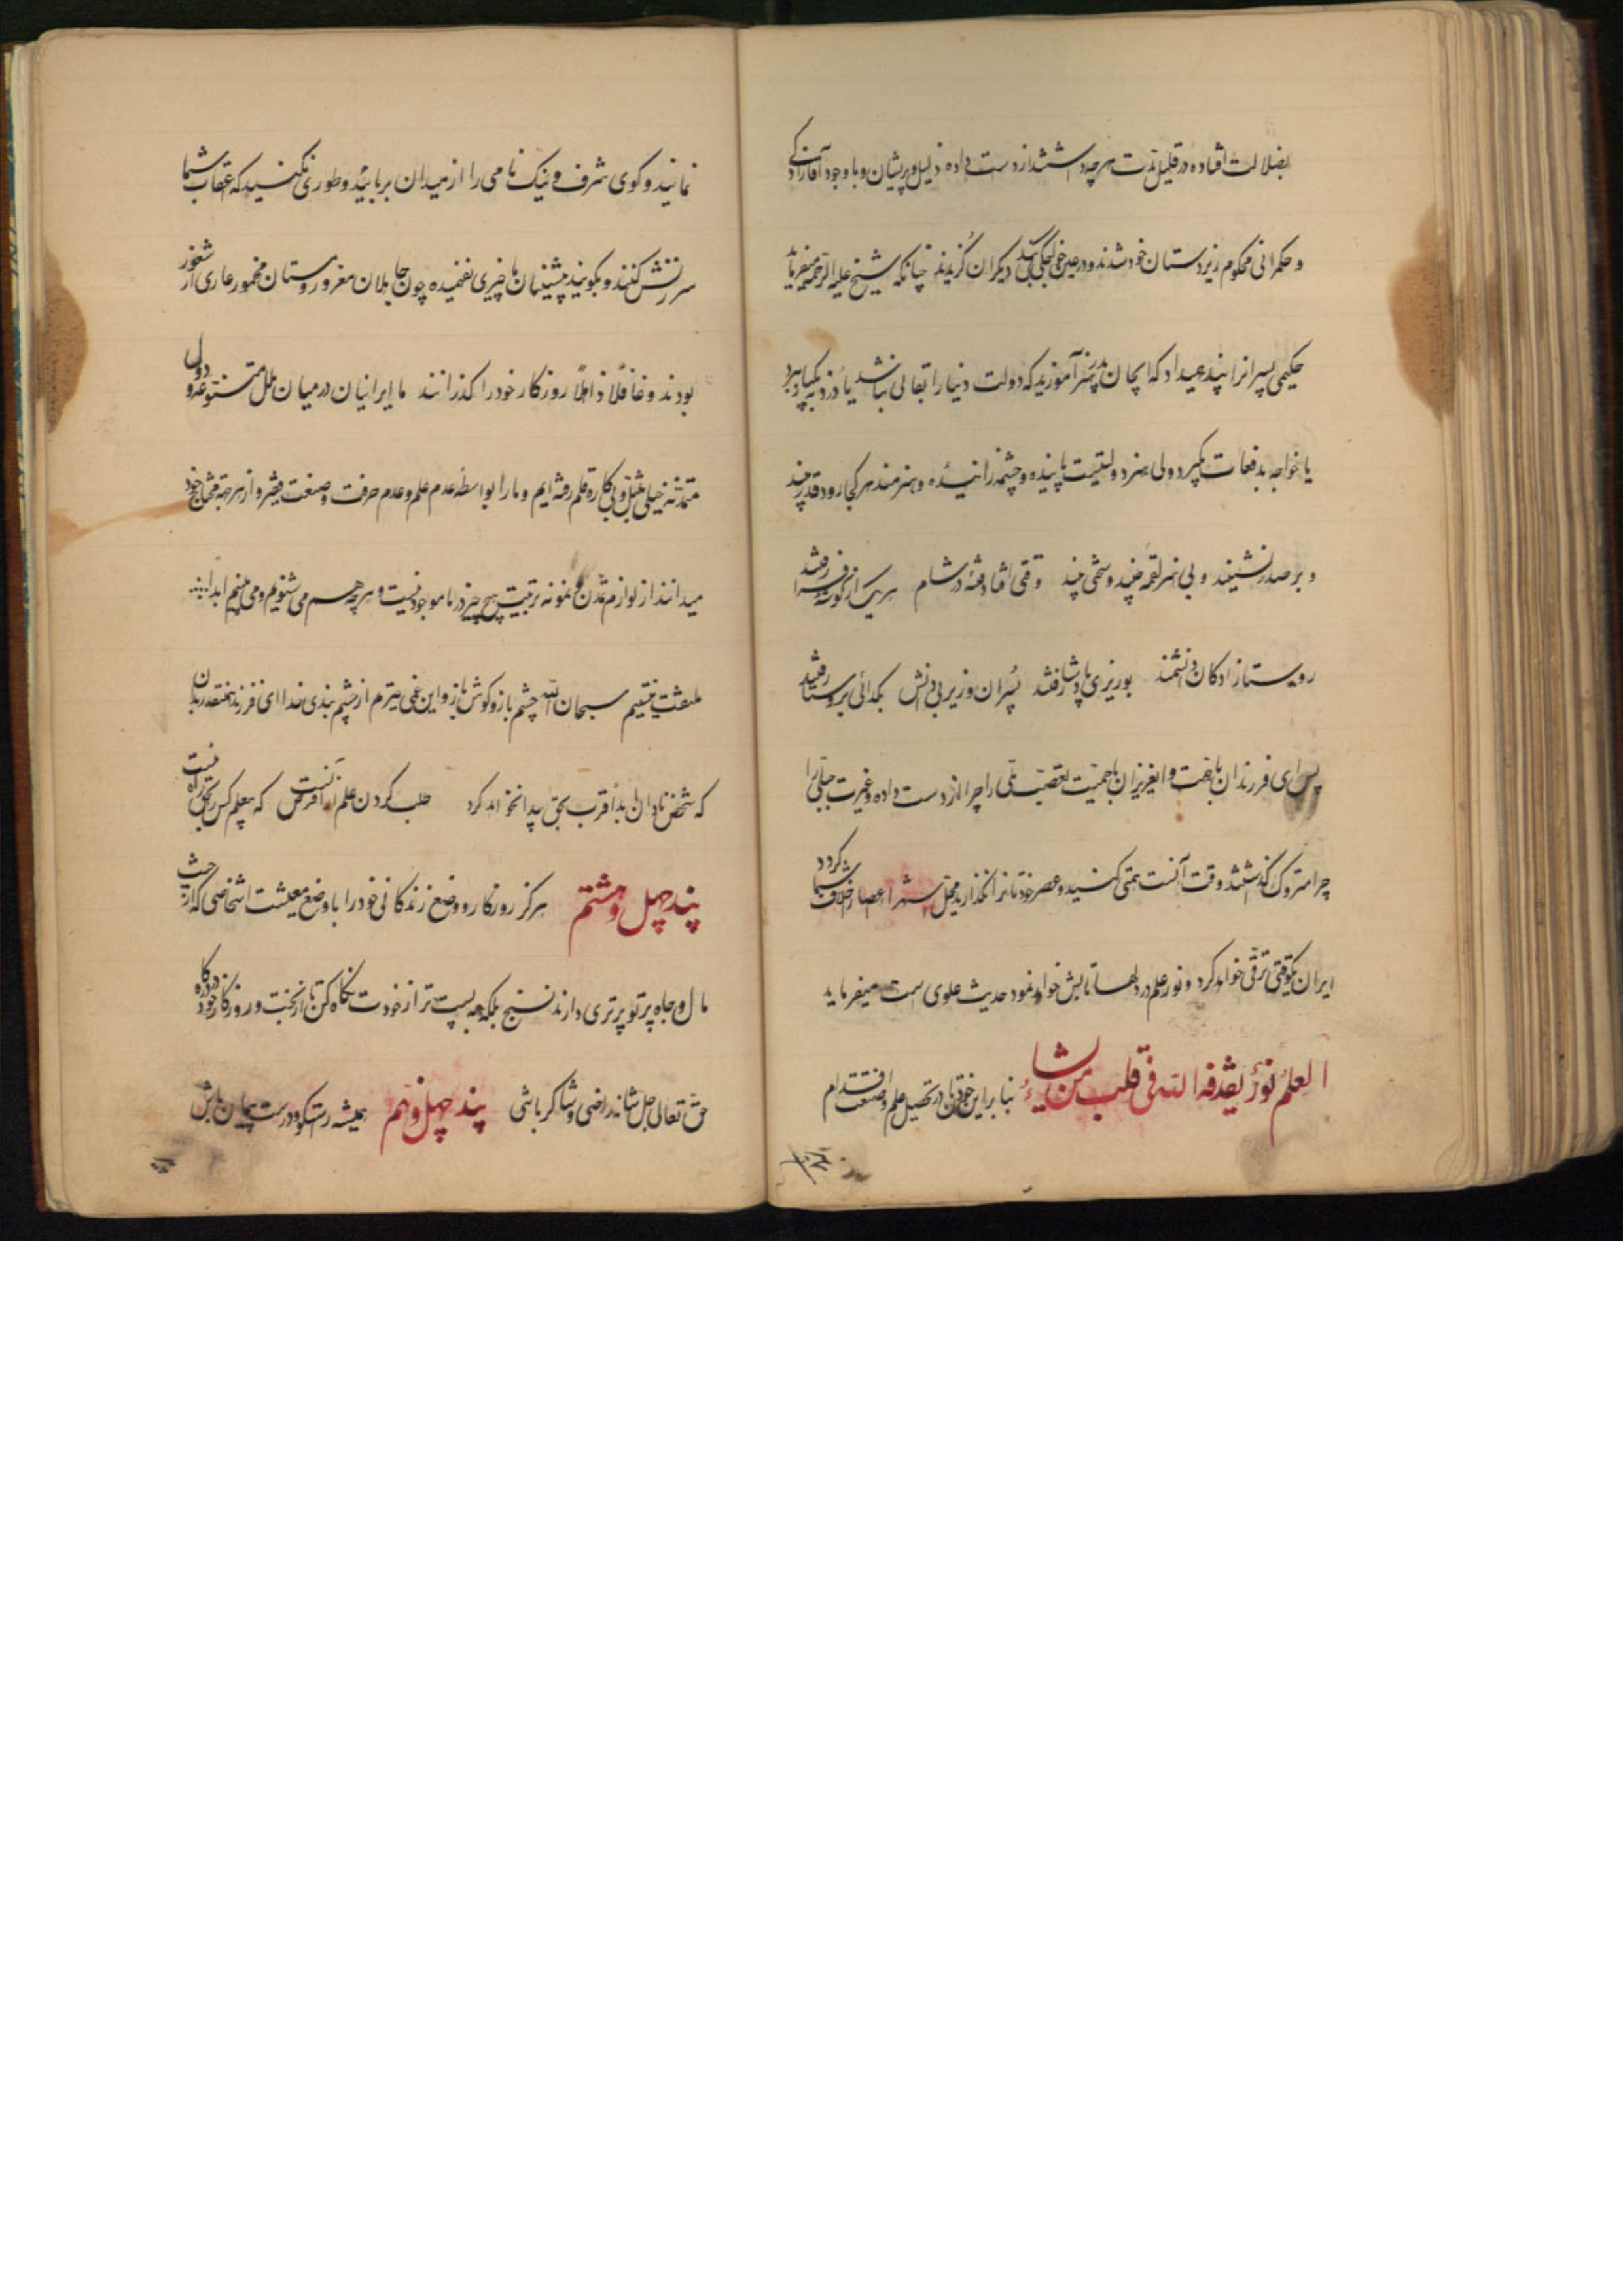 بضلالت افتاده در قلیل مدت هرچه داشتند از دست داده ذلیل و پریشان و با وجود آقا زادگی
و حکمرانی محکوم زیردستان خود شدند و در عین خواجگی بندگی دیگران گزیدند چنانکه شیخ علیه الرحمه میفرماید
حکیمی پسرانرا پند میداد که ایجان پدر هنر آموزید که دولت دنیا را بقائی نباشد یا دزد بیکبار ببرد
یا خواجه بدفعات بگیرد ولی هنر دولتیست پاینده و چشمه زاینده و هنرمند هر کجا رود قدر بیند
و بر صدر نشیند و بی هنر لقمه چیند و سختی بیند وقتی افتاد فتنهٔ در شام هر یک از گوشهٔ فرا رفتند
روستازادگان دانشمند بوزیری پادشا رفتند پسران وزیر بی دانش بگدائی بروستا رفتند
پس ای فرزندان با همت و ایعزیزان با حمیت تعصب ملی را چرا از دست داده و غیرت جبلی را
چرا متروک گذاشتند وقت آنست همتی کنید و عصر خودتانرا نگذارید مثل سایر اعصار خلاف شما گردد
ایران یکوقتی ترقی خواهد کرد و نور علم در دلها تابش خواهد نمود حدیث علوی است میفرماید
العلم نور یقذفه الله فی قلب من یشاء بنابراین خودتان در تحصیل علم و صنعت اقدام
نمائید و گوی شرف و نیک نامی را از میدان بربائید و طوری نکنید که اعقاب شما
سرزنش کنند و بگویند پیشینیان ما چیزی نفهمیده چون جاهلان مغرور و مستان مخمور عاری از شعور
بودند و غافلاً ذاهلاً روزگار خود را گذرانند ما ایرانیان در میان ملل متنوعه و دول
متمدنه خیلی تنبل و بیکاره قلم رفته ایم و ما را بواسطهٔ عدم علم و عدم حرفت و صنعت فقیر و از هر جهة محتاج خود
میدانند از لوازم تمدن و نمونه تربیت هیچ چیز در ما موجود نیست و هرچه هم می شنویم و می بینیم ابداً
ملتفت نیستیم سبحان الله چشم باز و گوش باز و این عمی حیرتم از چشم بندی خدا ای فرزند همینقدر بدان
که شخص نادان ابداً قرب بحق پیدا نخواهد کرد طلب کردن علم از آنست فرض که بیعلم کس را بحق راه نیست
پند چهل و هشتم هرگز روزگار و وضع زندگانی خود را با وضع معیشت اشخاصی که از حیث
مال و جاه بر تو برتری دارند نسنج بلکه به پست تر از خودت نگاه کن تا از بخت و روزگار خود و درگاه
حق تعالی جل شانه راضی و شاکر باشی پند چهل و نهم همیشه راستگو و درست پیمان باش